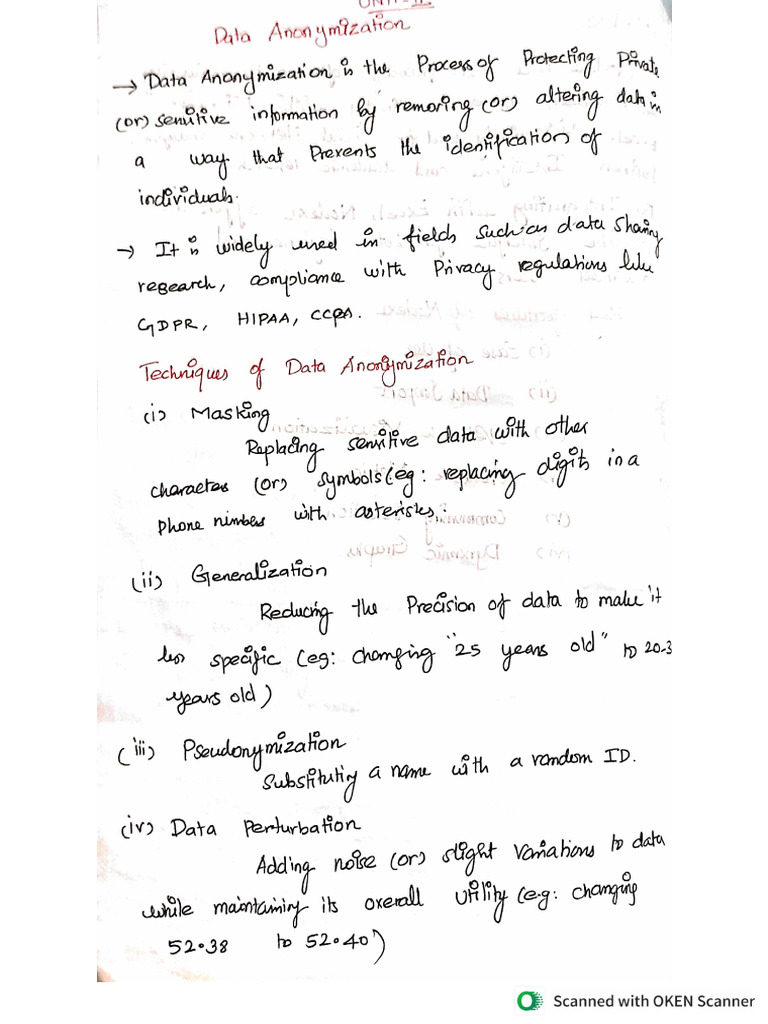 Data Anonymization
→ Data Anonymization is the Process of Protecting Private
(or) sensitive information by removing (or) altering data in
a way that Prevents the identification of
individuals.
→ It is widely used in fields such as data sharing
research, compliance with Privacy regulations like
GDPR, HIPAA, CCPA.
Techniques of Data Anonymization
(i) Masking
Replacing sensitive data with other
characters (or) symbols (eg: replacing digits in a
phone number with asterisks.
(ii) Generalization
Reducing the Precision of data to make it
less specific (eg: changing "25 years old" to 20-3
years old)
(iii) Pseudonymization
Substituting a name with a random ID.
(iv) Data Perturbation
Adding noise (or) slight variations to data
while maintaining its overall utility (eg: changing
52.38 to 52.40)
Scanned with OKEN Scanner